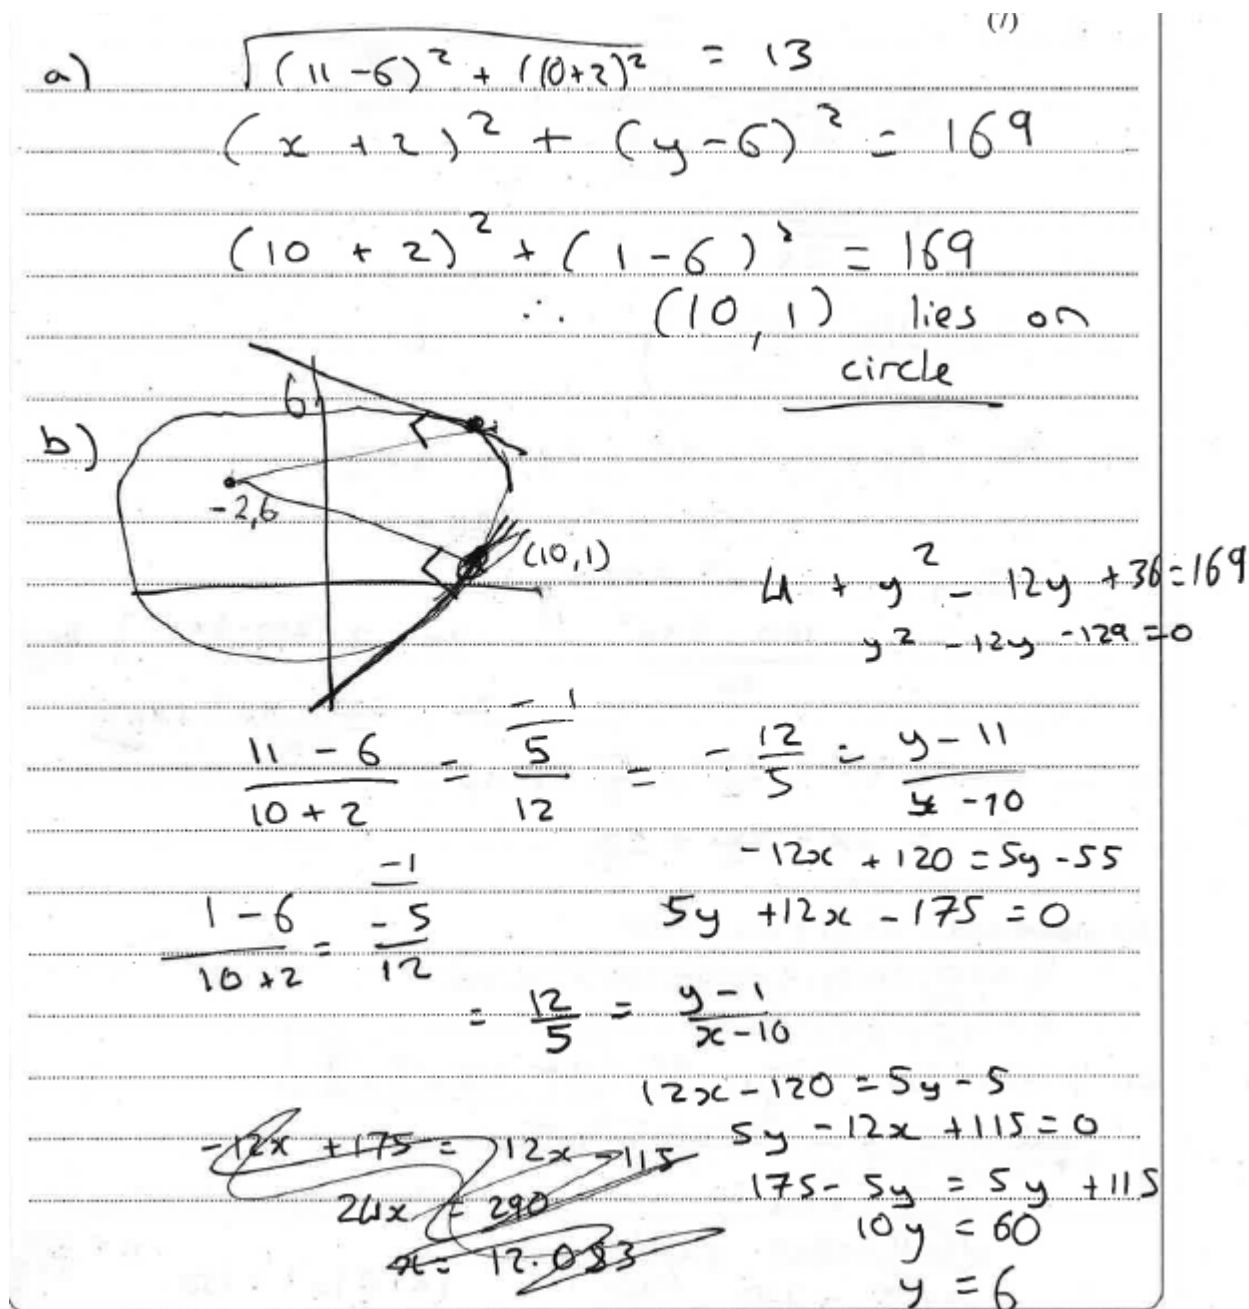 (7)
a) √((11-6)² + (10+2)²) = 13
(x+2)² + (y-6)² = 169
(10+2)² + (1-6)² = 169
∴ (10,1) lies on
circle
b)
6
-2,6
(10,1)
4 + y² - 12y + 36 = 169
y² - 12y - 129 = 0
(11-6)/(10+2) = -1/(5/12) = -12/5 = (y-11)/(x-10)
-12x + 120 = 5y - 55
5y + 12x - 175 = 0
(1-6)/(10+2) = -1/(-5/12)
= 12/5 = (y-1)/(x-10)
12x - 120 = 5y - 5
5y - 12x + 115 = 0
-12x + 175 = 12x - 115
24x = 290
x = 12.083
175 - 5y = 5y + 115
10y = 60
y = 6